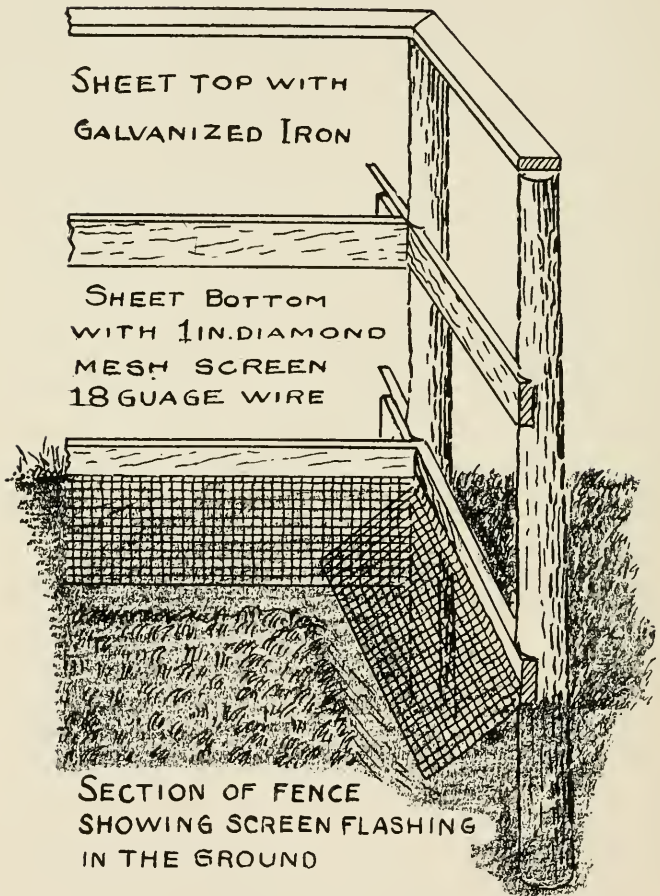 SHEET TOP WITH
GALVANIZED IRON
SHEET BOTTOM
WITH 1 IN. DIAMOND
MESH SCREEN
18 GUAGE WIRE
SECTION OF FENCE
SHOWING SCREEN FLASHING
IN THE GROUND